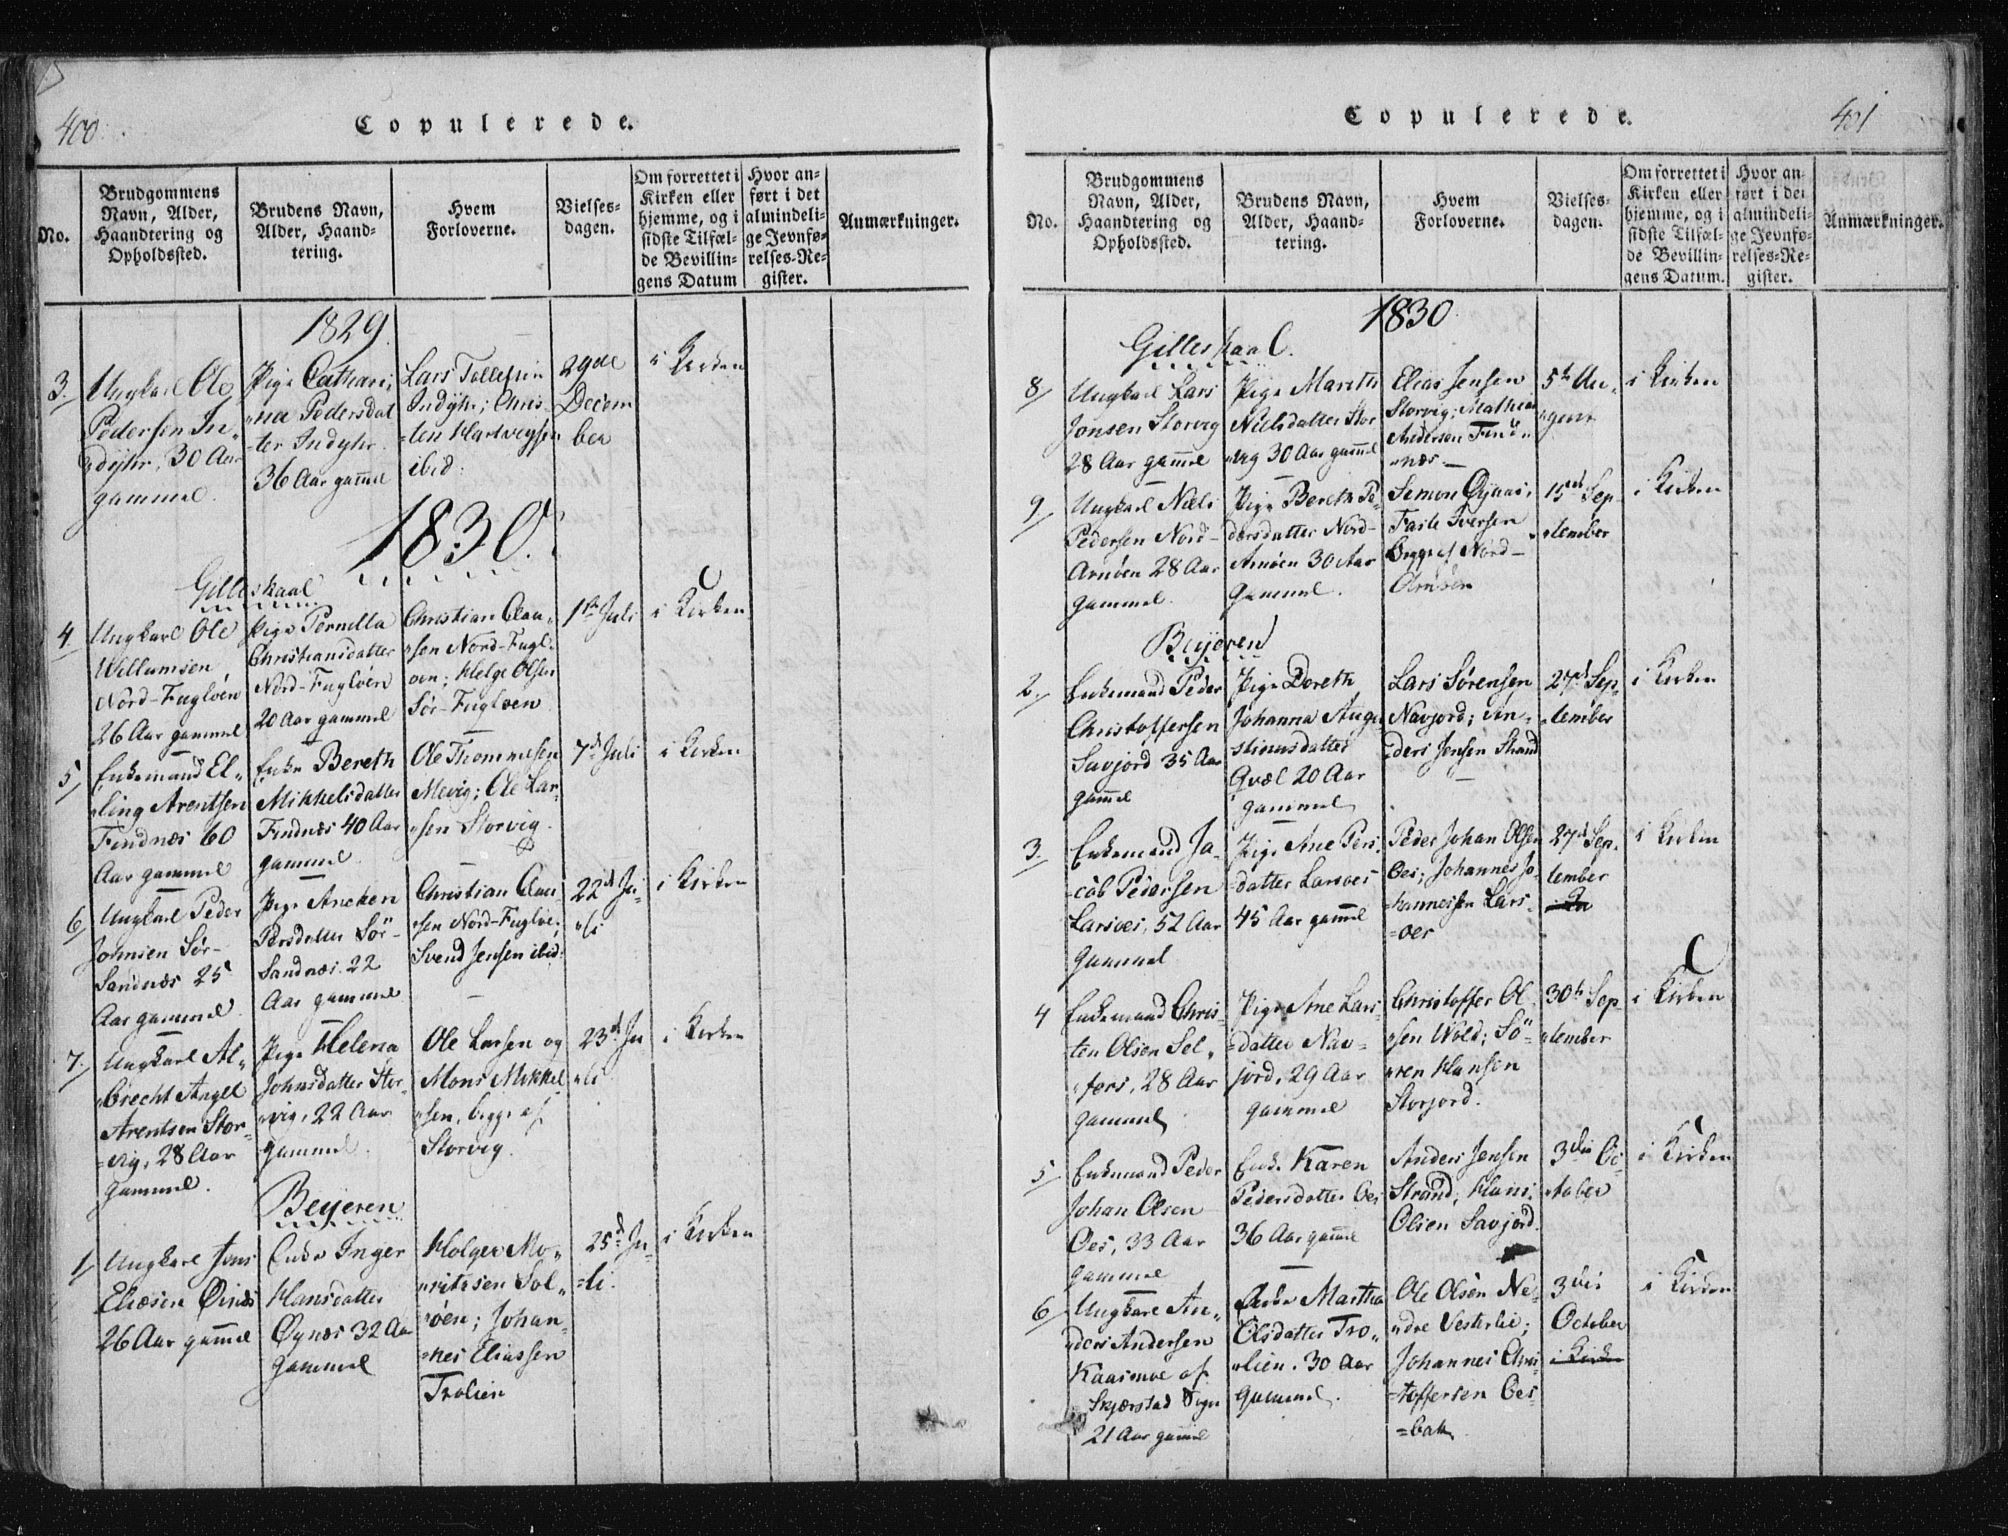 400.
Copulerede.
No.
Brudgommens
Navn, Alder,
Haandtering og
Opholdssted.
Brudens Navn,
Alder, Haand-
tering.
Hvem
Forloverne.
Vielses-
dagen.
Om forrettet i
Kirken eller
hjemme, og i
sidste Tilfæl-
de Bevillin-
gens Datum
Hvor an-
ført i det
almindeli-
ge Jevnfø-
relses-Re-
gister.
Anmærkninger.
1829.
3.
Ungkarl Ole
Pedersen In-
dyhr, 30 Aar
gammel.
Pige Cathari-
na Pedersdat
ter Indyhr
36 Aar gam̄el
Lars Tollefsen
Indyhr; Chris-
ten Hartvigsen
ibid:
29de
Decem
ber
i Kirken
1830.
Gilleskaal
4.
Ungkarl Ole
Willumsen
Nord-Fugløen
26 Aar gammel
Pige Pernilla
Christiansdatter
Nord-Fugløen
20 Aar gammel
Christian Clau-
sen Nord-Fugl-
øen; Helge Olsen
Sør-Fugløen
1ste Juli
i Kirken
5/
Enkemand El-
ling Arentsen
Findnæs 60
Aar gammel
Enke Bereth
Mikkelsdatter
Findnæs 40 Aar
gammel
Ole Thommesen
Mevig; Ole Lar-
sen Storvig.
7d Juli
i Kirken
6/
Ungkarl Peder
Johnsen Sør-
Sandnæs 25
Aar gammel.
Pige Aneken
Persdatter Sør-
Sandnæs. 22
Aar gammel
Christian Clau-
sen Nord-Fugløe;
Svend Jensen ibid:
22d Ju-
li
i Kirken
7.
Ungkarl Al-
brecht Angel
Arentsen Stor-
vig, 28 Aar
gammel.
Pige Helena
Johnsdatter Stor-
vig, 22 Aar
gammel.
Ole Larsen og
Mons Mikkel
sen, begge af
Storvig.
23d Ju
li
i Kirken
Beyeren
1/
Ungkarl Jens
Eliæsen Øinæs
26 Aar gam̄el
Enke Inger
Hansdatter
Øynæs 32 Aar
gammel
Holger Mo-
ritzsen Sol-
øen; Johan-
nes Eliassen
Trolien
25d Ju-
li.
i Kirken
Copulerede.
401
No.
Brudgommens
Navn, Alder,
Haandtering og
Opholdssted.
Brudens Navn,
Alder, Haand-
tering.
Hvem
Forloverne.
Vielses-
dagen.
Om forrettet i
Kirken eller
hjemme, og i
sidste Tilfæl-
de Bevillin-
gens Datum.
Hvor an-
ført i det
almindeli-
ge Jevnfø-
relses-Re-
gister.
Anmærkninger.
1830
Gilleskaal.
8/
Ungkarl Lars
Jonsen Storvig
28 Aar gam̄el
Pige Mareth
Nielsdatter Stor
vig 30 Aar gam̄el
Elias Jensen
Storvig; Mathias
Andersen Find-
næs
5te Au-
gust
i Kirken
9/
Ungkarl Niels
Pedersen Nord-
Arnøen 28 Aar
gammel.
Pige Bereth Pe-
dersdatter Nord-
Arnøen 30 Aar
gammel.
Simon
Iversen
begge af Nord-
Arnøen
15d Sep-
tember
i Kirken
Beyeren
2./
Enkemand Peder
Christoffersen
Savjord 35 Aar
gam̄el
Pige Doreth
Johanna Augu
stinusdatter
Qvæl 20 Aar
gammel
Lars Sørensen
Navjord; An-
ders Jensen Strand
27d Sep-
tember
i Kirken
3.
Enkemand Ja-
cob Pedersen
Larsoes, 52 Aar
gammel
Pige Ane Pers-
datter Larsoes
45 Aar gam̄el
Peder Johan Olsen
Oes; Johannes Jo-
hannessen Lars-
oes
27d Sep-
tember
i Kirken
4
Enkemand Chris-
ten Olsen Sel-
fors, 28 Aar
gammel
Pige Ane Lars-
datter Nav-
jord, 29 Aar
gammel
Christoffer Ol-
sen Wold; Sö-
ren Hansen
Storjord.
30te Sep
tember
i Kirken
5/
Enkemand Peder
Johan Olsen
Oes, 33 Aar
gammel
Enke Karen
Pedersdatter Oes
36 Aar gam̄el
Anders Jensen
Strand; Hans
Olsen Savjord.
3die Oc-
tober
i Kirken
6/
Ungkarl An-
ders Andersen
Kaasmoe af
Skjærstad Sogn
21 Aar gam̄el
Enke Martha
Olsdatter Tro-
lien. 30 Aar
gammel.
Ole Olsen Ne-
dre Vesterlie;
Johannes Chris
toffersen Oes-
bak
3die
October
i Kirke
i Kirken